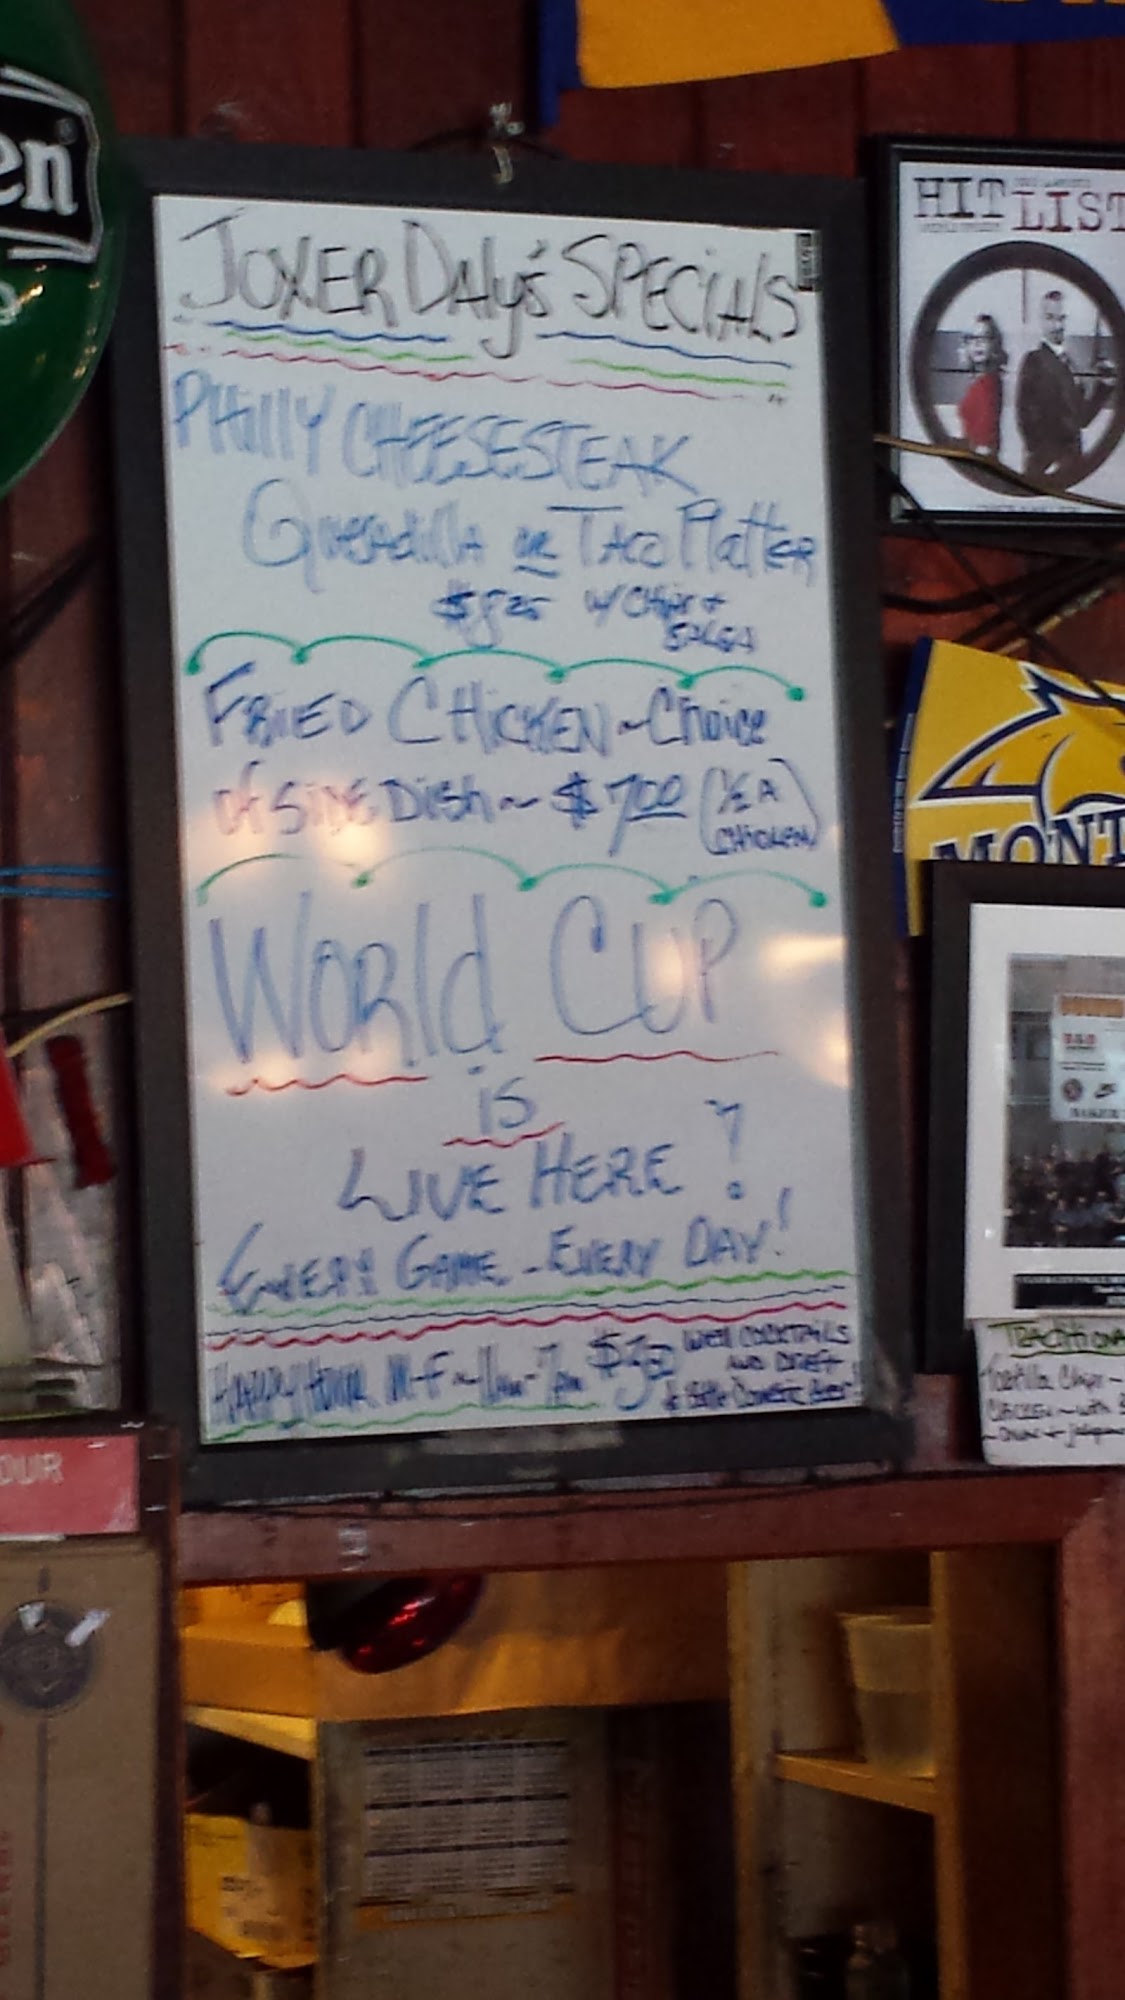 en
JOXER DAly's SPECiAlS
PHillY CHEESESTEAK
Quesadilla or Taco PlattER
$8 25 w/ CHips +
SALSA
FRiED CHiCKEN ~ CHoice
of SiDE Dish ~ $7.00 (1/2 A
CHiCKEN)
WORld CUP
is
LIVE HERE !
EVERY GAME - EVERY DAY!
HAPPY HOUR M-F ~ 11am-7pm
WELL COCKTAILS
AND DRAFT
HIT LIST
MONT
TRADITIONA
Tortilla Chips ~
CHICKEN ~ with
OUR